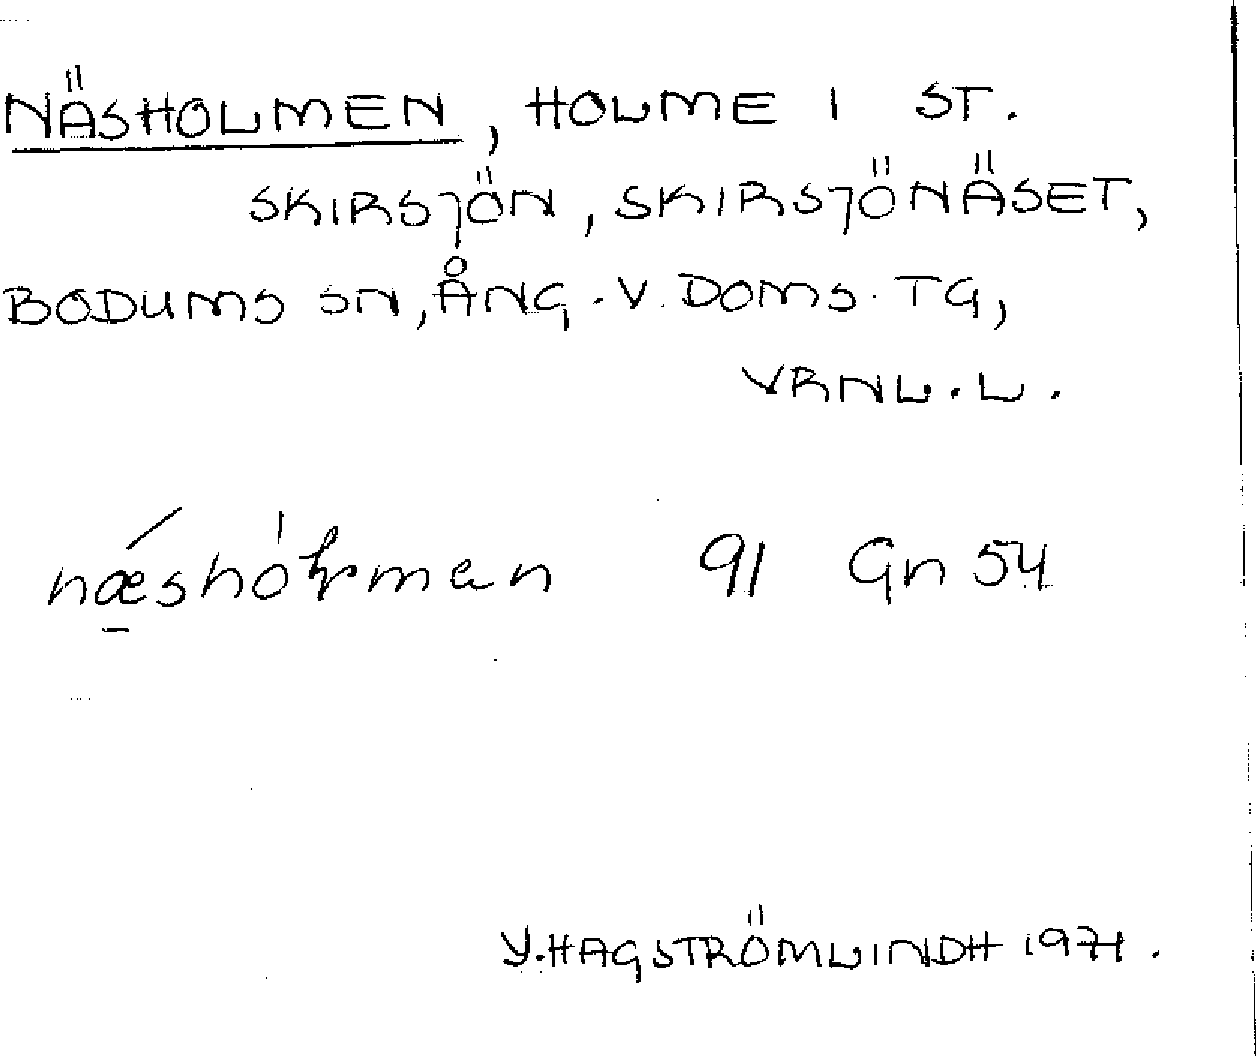 NÄSHOLMEN, HOLME I ST.
SKIRSJÖN, SKIRSJÖNÄSET,
BODUMS SN, ÅNG. V. DOMS. TG,
VRNL. L.
91 Gn 54
Y. HAGSTRÖM LINDH 1971.